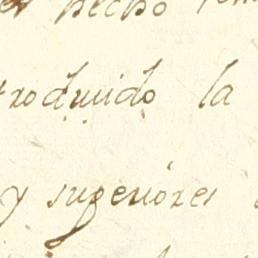 hecho
troduuido la
y superiores